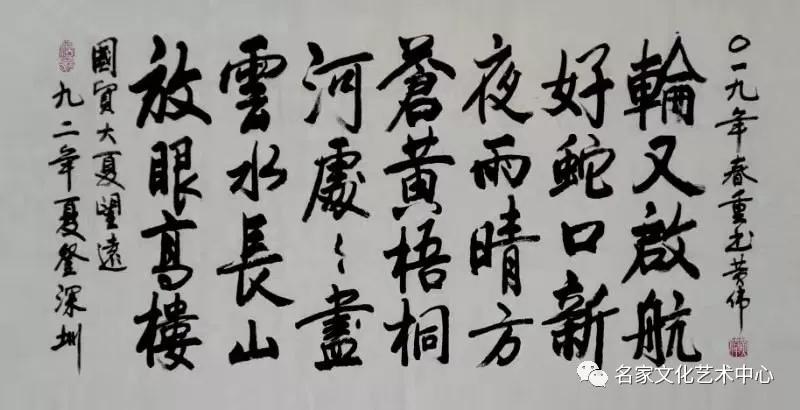 九二年夏登深圳
國貿大夏望遠
放眼高樓
雲水長山
河處〻盡
蒼黃梧桐
夜雨晴方
好蛇口新
輪又啟航
〇一九年春重书黄伟
名家文化艺术中心